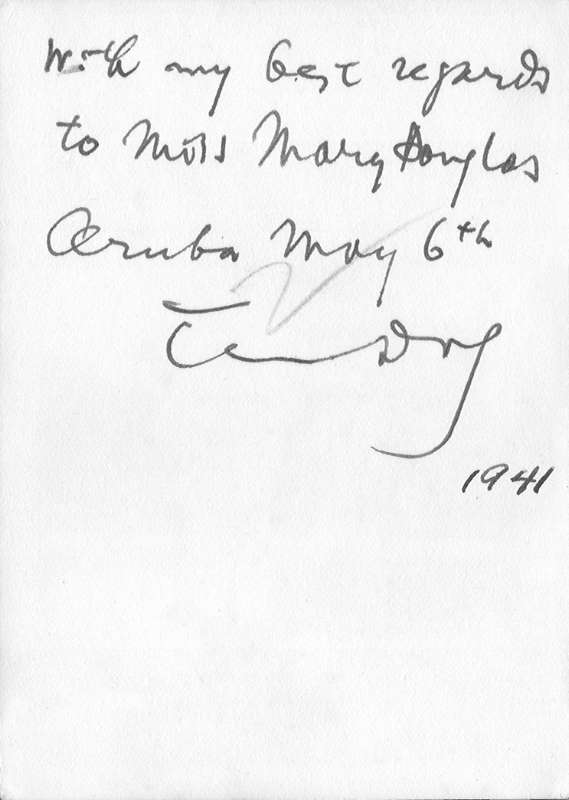 With my best regards
to Miss Mary Douglas
Aruba May 6th
1941